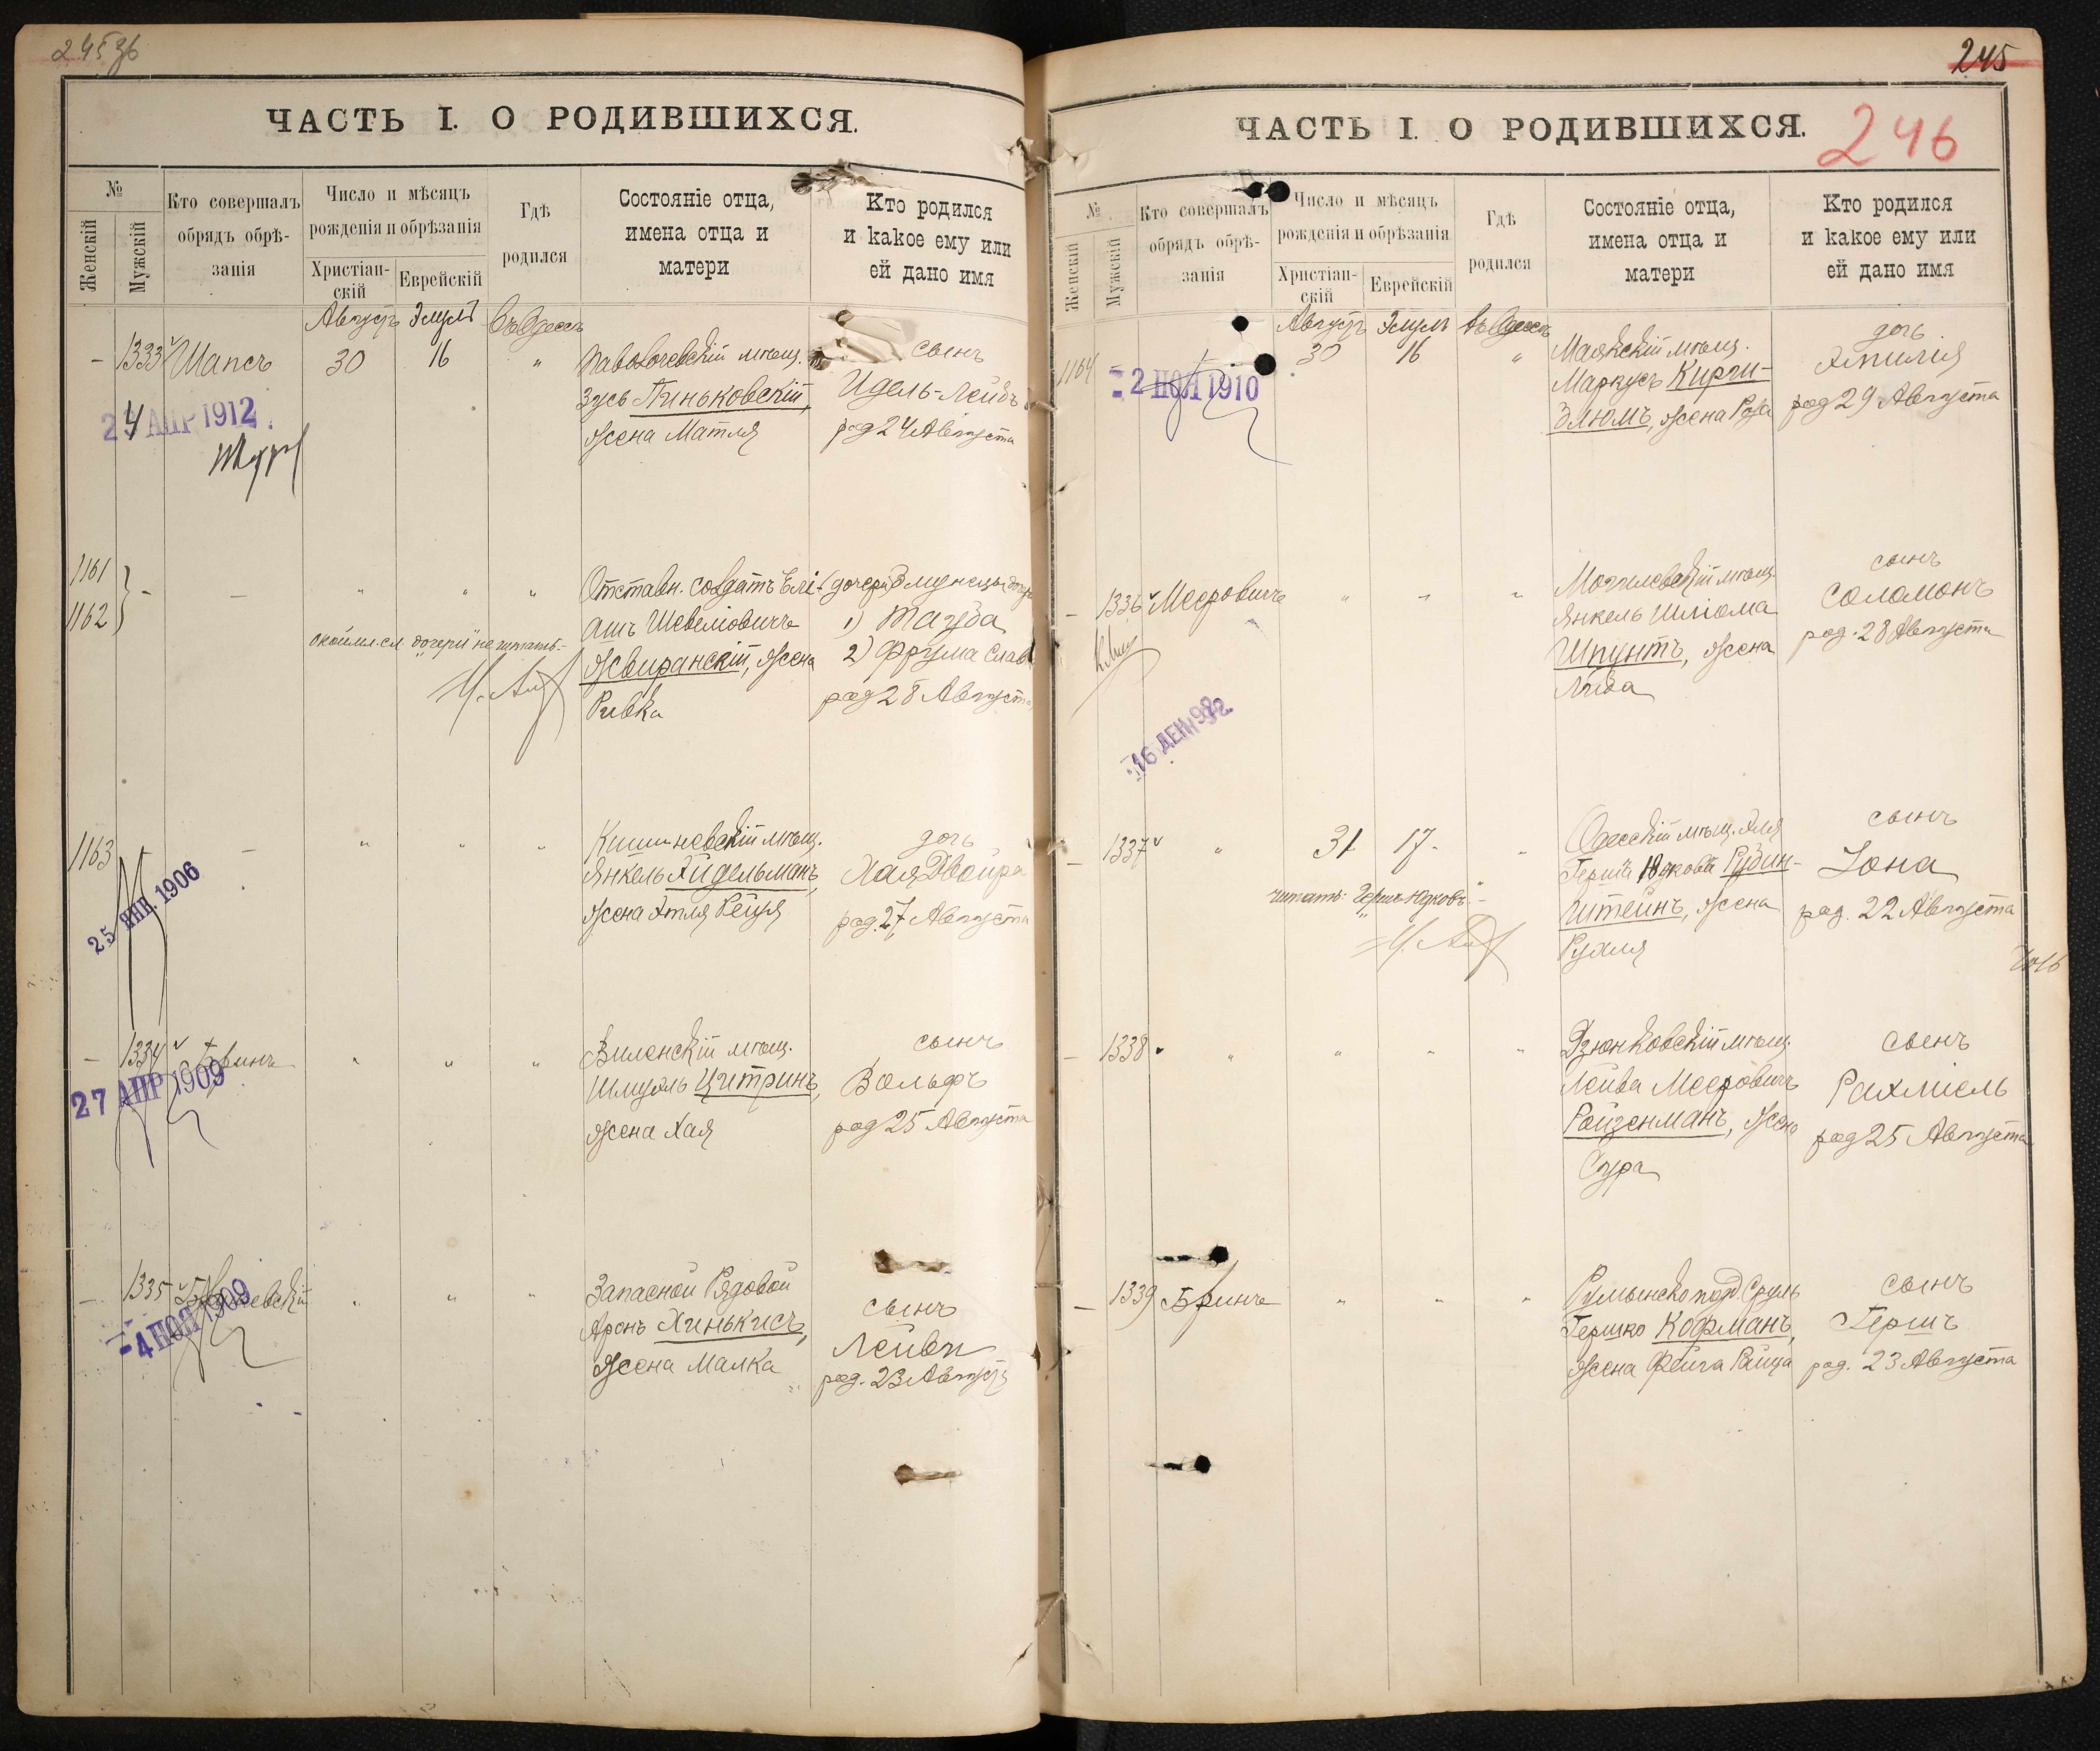 245 об
ЧАСТЬ I. О РОДИВШИХСЯ.
№
Женскій
Мужскій
Кто совершалъ обрядъ обрѣ-
занія
Число и мѣсяцъ
рожденія и обрѣзанія
Христіан-
скій
Еврейскій
Гдѣ
родился
Состояніе отца,
имена отца и
матери
Кто родился
и какое ему или
ей дано имя
Августъ Элулъ въ Одессѣ
– 1333 Шапсъ 30 16 "
Паволочевскій мѣщ.
Зусь Пиньковскій,
жена Матля
сынъ
Идель-Лейбъ
род 24 Августа
24 АПР 1912
1161
1162
– – " " "
Отставн. солдатъ Елі-
ашъ Шевеліовичъ
Жвиранскій, жена
Ривка
1) Тауба
2) Фрума Слава
род 28 Августа
дочери не читать.–
1163 – " " "
Кишиневскій мѣщ.
Янкель Хидельманъ,
жена Этля Рейзя
дочь
Хая Двойра
род. 27 Августа
25 ЯНВ. 1906
– 1334 Бринъ " " "
Виленскій мѣщ.
Шмуэль Цитринъ,
жена Хая
сынъ
Вольфъ
род 25 Августа
27 АПР 1909
– 1335 " " "
Запасной Рядовой
Аронъ Хинькисъ,
жена Малка
сынъ
Лейви
род. 23 Августа
4 1909
245
246
ЧАСТЬ I. О РОДИВШИХСЯ.
№
Женскій
Мужскій
Кто совершалъ
обрядъ обрѣ-
занія
Число и мѣсяцъ
рожденія и обрѣзанія
Христіан-
скій
Еврейскій
Гдѣ
родился
Состояніе отца,
имена отца и
матери
Кто родился
и какое ему или
ей дано имя
Августъ Элулъ въ Одессѣ
1164 30 16 "
Маякскій мѣщ.
Маркусъ Кирги-
Злюмъ, жена Роза
дочь
Эмилія
род 29 Августа
2 1910
– 1336 Мееровичъ " " "
Могилевскій мѣщ.
Янкель Шліома
Шпунтъ, жена
Люба
сынъ
Соломонъ
род. 28 Августа
16 ДЕК
– 1337 " 31 17 "
Одесскій мѣщ.
Герша Юдкова Рубин-
штейнъ, жена
Рухля
сынъ
Іона
род. 22 Августа
читать: Гершъ Юдковъ.–
– 1338 " " " "
Дзюнковскій мѣщ.
Лейва Мееровичъ
Ройзенманъ, жена
Сура
сынъ
Рахміель
род 25 Августа
– 1339 Бринъ " " "
Румынско под. Сруль
Гершко Кофманъ,
жена Фейга Райца
сынъ
Гершъ
род. 23 Августа